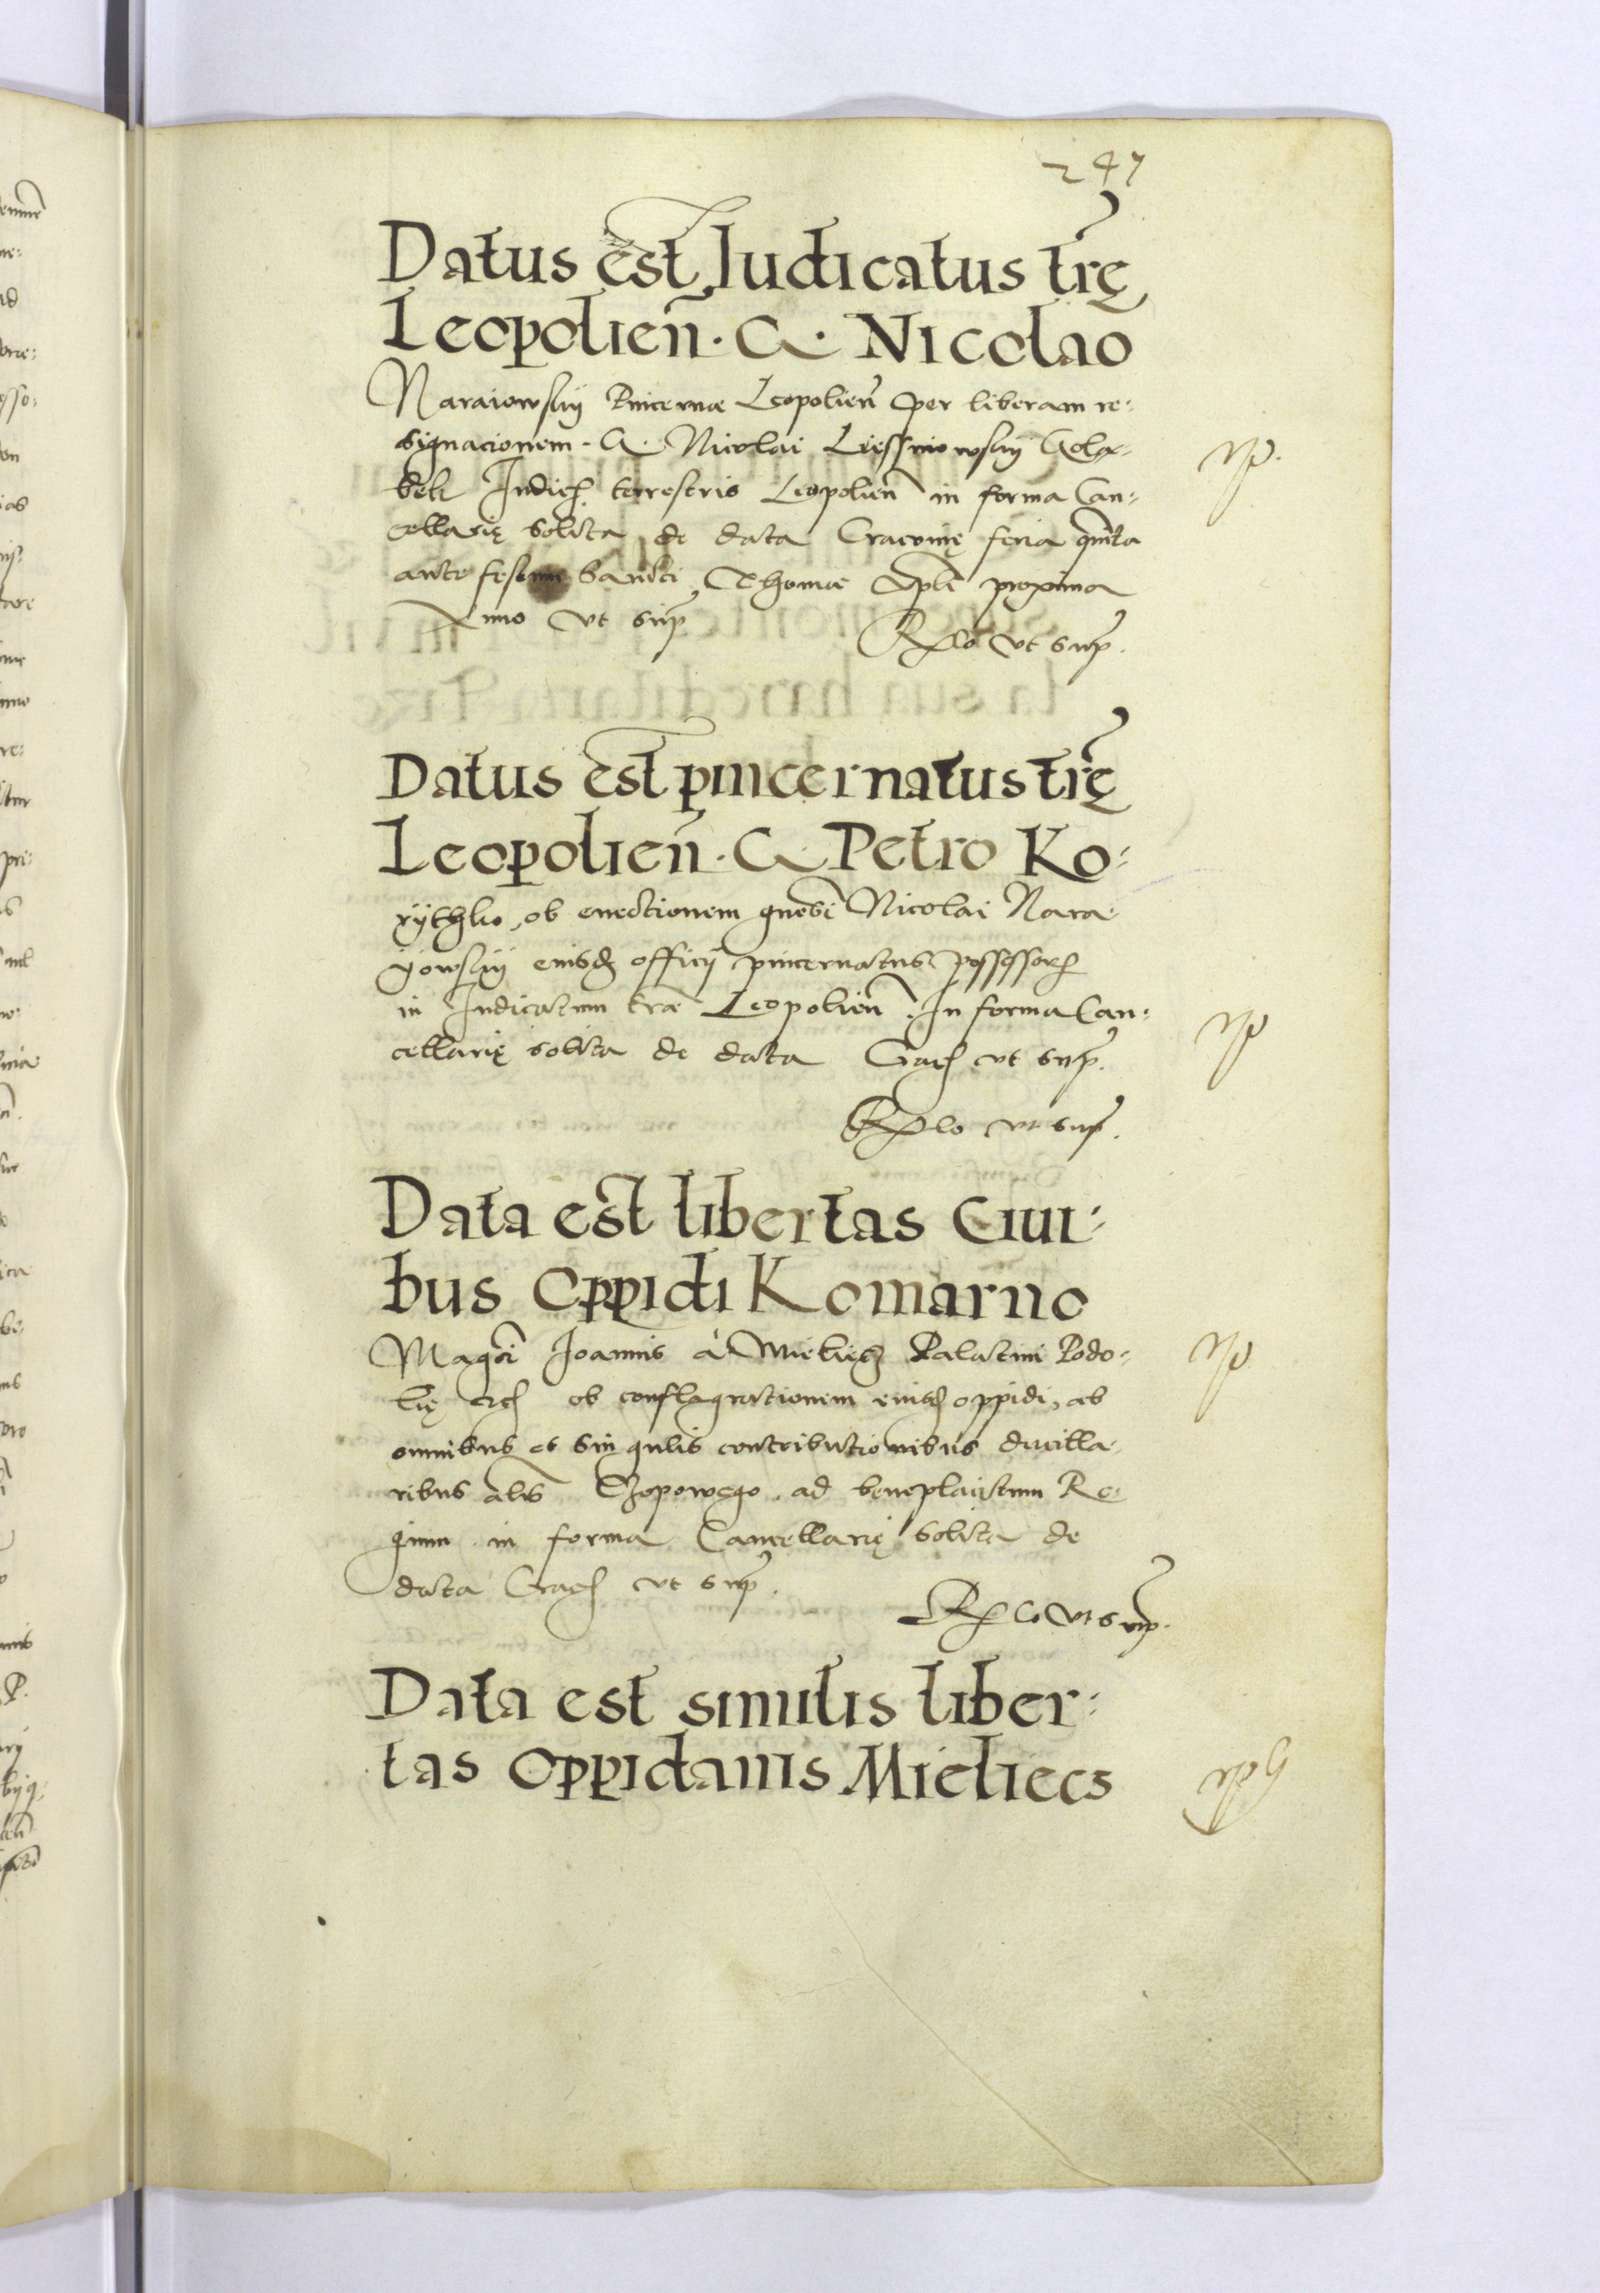 247
Datus est Iudicatus trę
Leopolien̄. G. Nicolao
Naraiowskij Pincernæ Leopolien̄ per liberam re:
signacionem. G. Nicolai
Iudic̄ terrestris Leopolien̄ in forma Can:
cellarię solita de data Cracovię feria quinta
ante festum Sancti Thomæ Apl̄i proxima
Anno vt sup̄
Rełło vt sup̄.
Datus est pincernatus trę
Leopolien̄. G. Petro Ko:
rÿthko, ob euectionem gnosi Nicolai Nara
ÿowskij eiusd̄ officij pincernatus possessor̄
in Iudicatum træ Leopolien̄. In forma Can:
cellarię solita de data Crac̄ vt sup̄.
Rełło vt sup̄.
Data est libertas Ciui:
bus Oppidi Komarno
Magci Joannis à Mieliecz Palatini Podo:
lię etc̄ ob conflagrationem eiusd̄ oppidi, ab
omnibus et singulis contributionibus ducilla
ribus al̄s Czopowego. ad beneplacitum Re:
gium in forma Cancellarię solita de
data Crac̄ vt sup̄.
Rełło vt sup̄.
Data est similis liber:
tas oppidanis Mieliecz